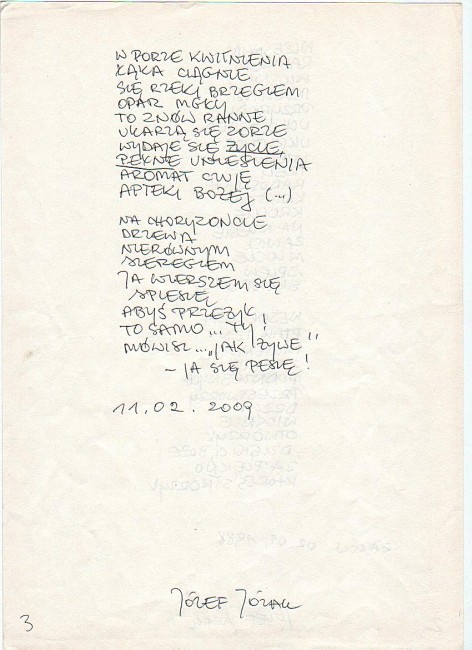 W PORZE KWITNIENIA
ŁĄKA CIĄGNIE
SIĘ RZEKI BRZEGIEM
OPAR MGŁY
TO ZNÓW RANNE
UKARZĄ SIĘ ZORZE
WYDAJE SIĘ ŻYCIE,
PEŁNE UNIESIENIA
AROMAT CZUJĘ
APTEKI BOŻEJ (...)
NA CHORYZONCIE
DRZEWA
NIERÓWNYM
SZEREGIEM
JA WIERSZEM SIĘ
SPIESZĘ
ABYŚ PRZEŻYŁ
TO SAMO... TY!
MÓWISZ... „JAK ŻYWE"
– JA SIĘ PESZĘ!
11.02.2009
JÓZEF
3